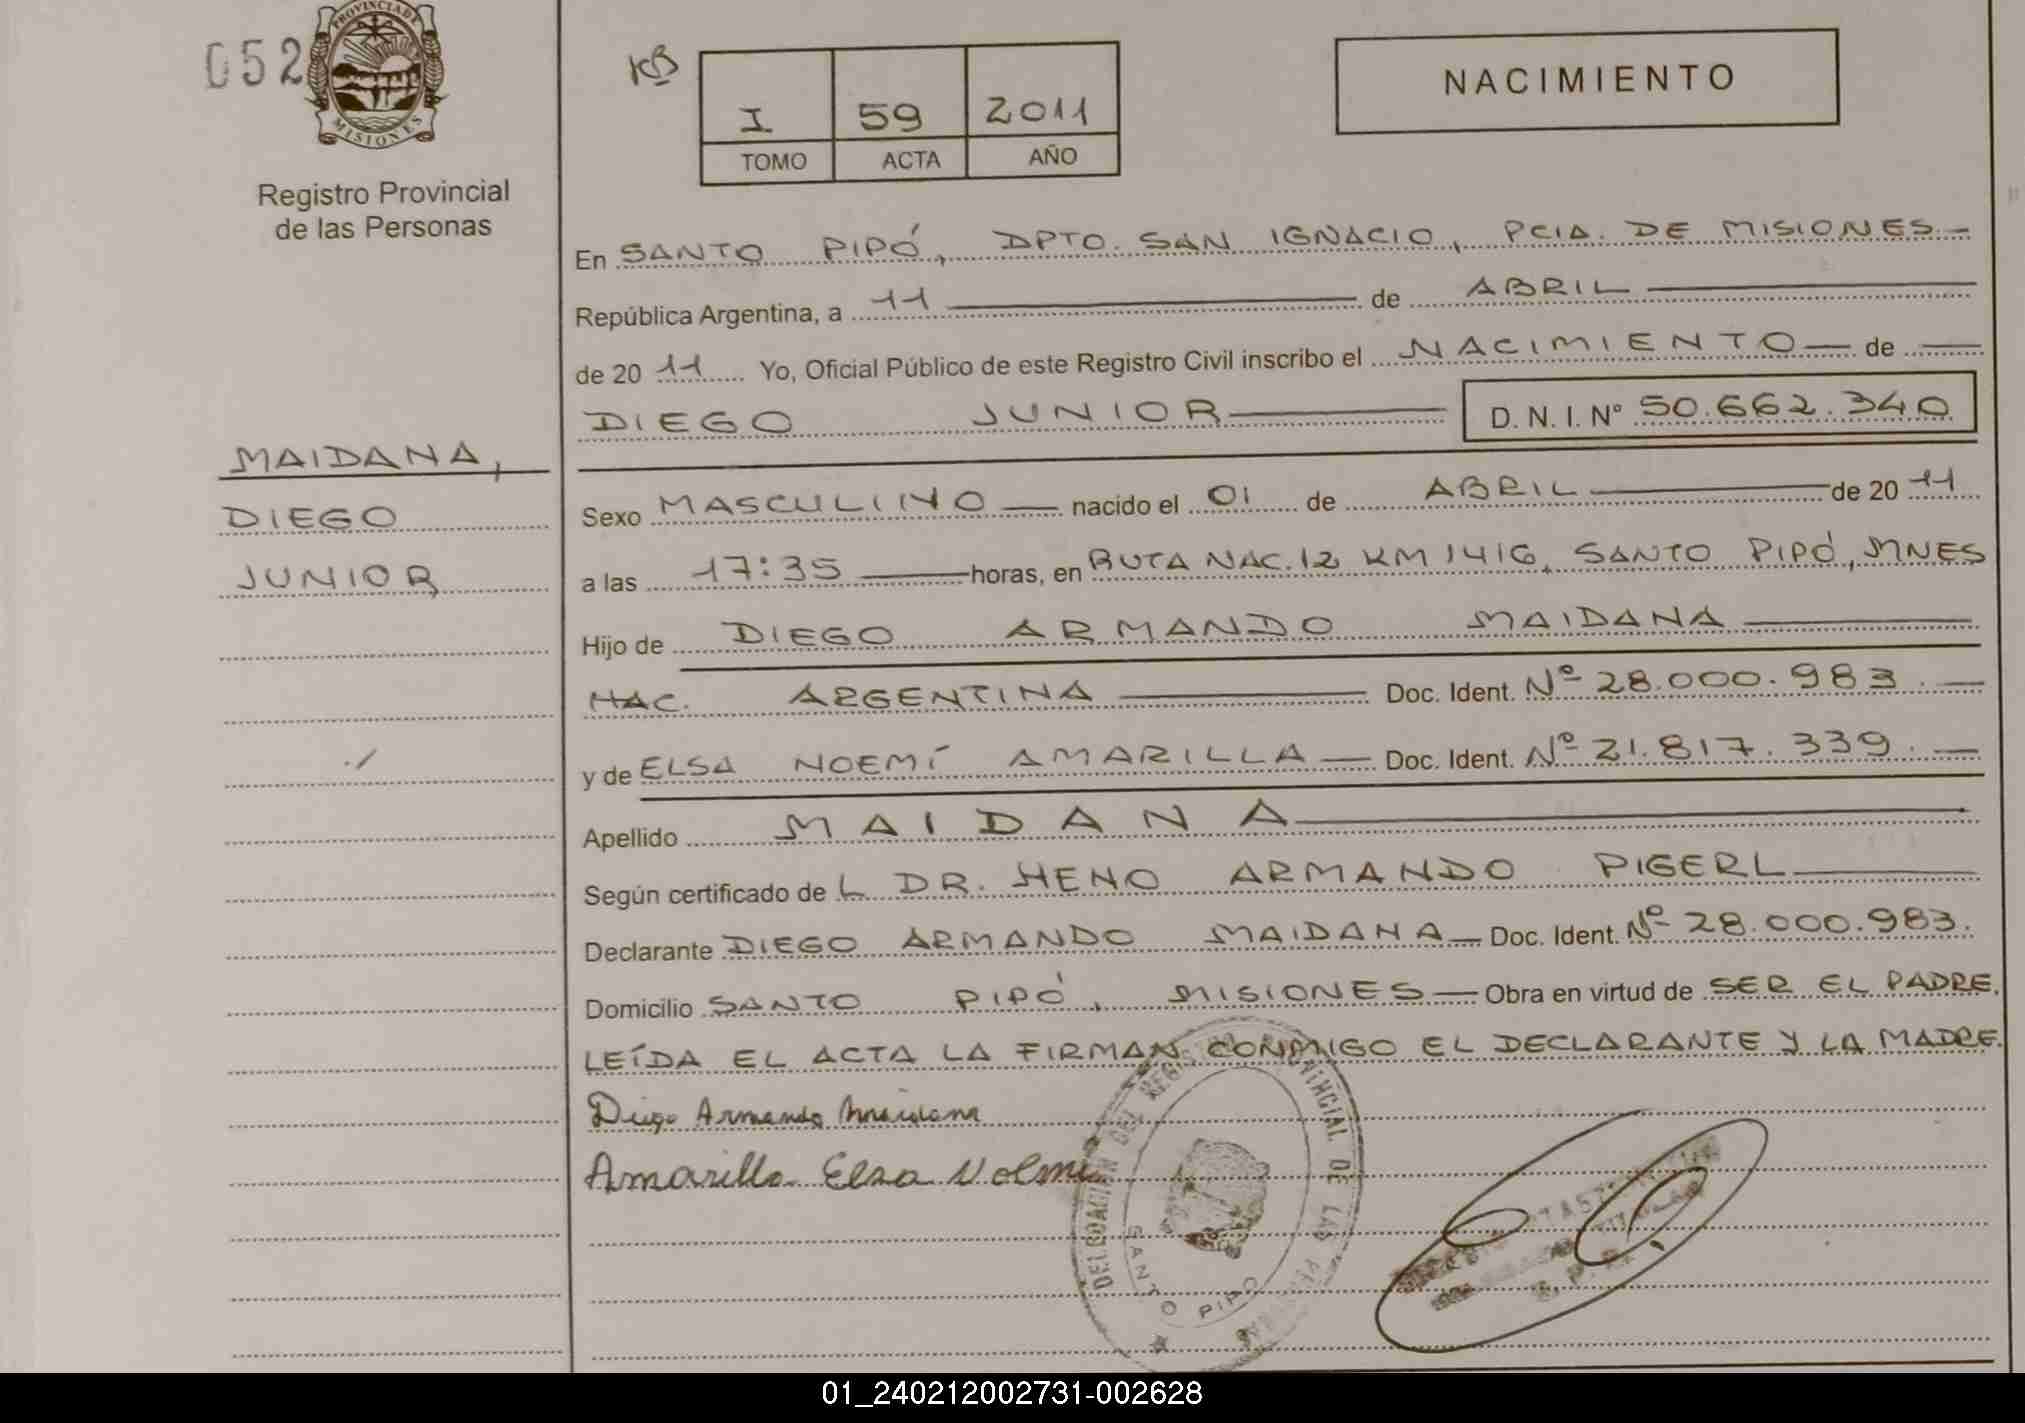 052
PROVINCIA DE
MISIONES
Registro Provincial
de las Personas
KB
I 59 2011
TOMO ACTA AÑO
NACIMIENTO
MAIDANA,
DIEGO
JUNIOR
En SANTO PIPÓ, DPTO. SAN IGNACIO, PCIA. DE MISIONES.-
República Argentina, a 11 de ABRIL
de 2011 Yo, Oficial Público de este Registro Civil inscribo el NACIMIENTO de
DIEGO JUNIOR D. N. I. Nº 50.662.340
Sexo MASCULINO nacido el 01 de ABRIL de 2011
a las 17:35 horas, en RUTA NAC. 12 KM 1416, SANTO PIPÓ, MNES
Hijo de DIEGO ARMANDO MAIDANA
NAC. ARGENTINA Doc. Ident. Nº 28.000.983.
y de ELSA NOEMÍ AMARILLA Doc. Ident. Nº 21.817.339.
Apellido MAIDANA
Según certificado de L DR. HENO ARMANDO PIGERL
Declarante DIEGO ARMANDO MAIDANA Doc. Ident. Nº 28.000.983.
Domicilio SANTO PIPÓ, MISIONES Obra en virtud de SER EL PADRE.
LEÍDA EL ACTA LA FIRMAN CONMIGO EL DECLARANTE Y LA MADRE.
Diego Armando Maidana
Amarilla Elsa
DELEGACION DEL REGISTRO PROVINCIAL DE LAS PERSONAS
SANTO PIPO
01_240212002731-002628